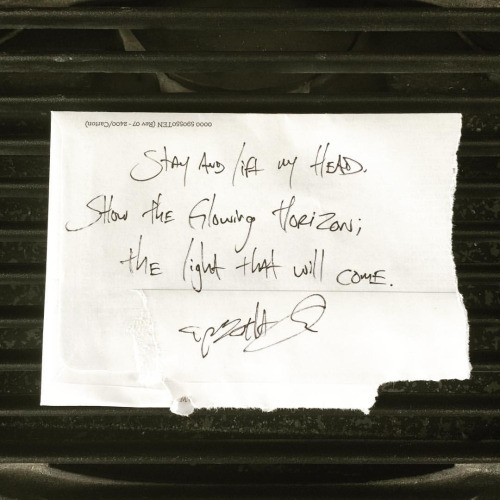 0000 590550TEN (Rev 07 - 2400/Carton)
Stay and lift my Head.
Show the Glowing Horizon;
the light that will come.